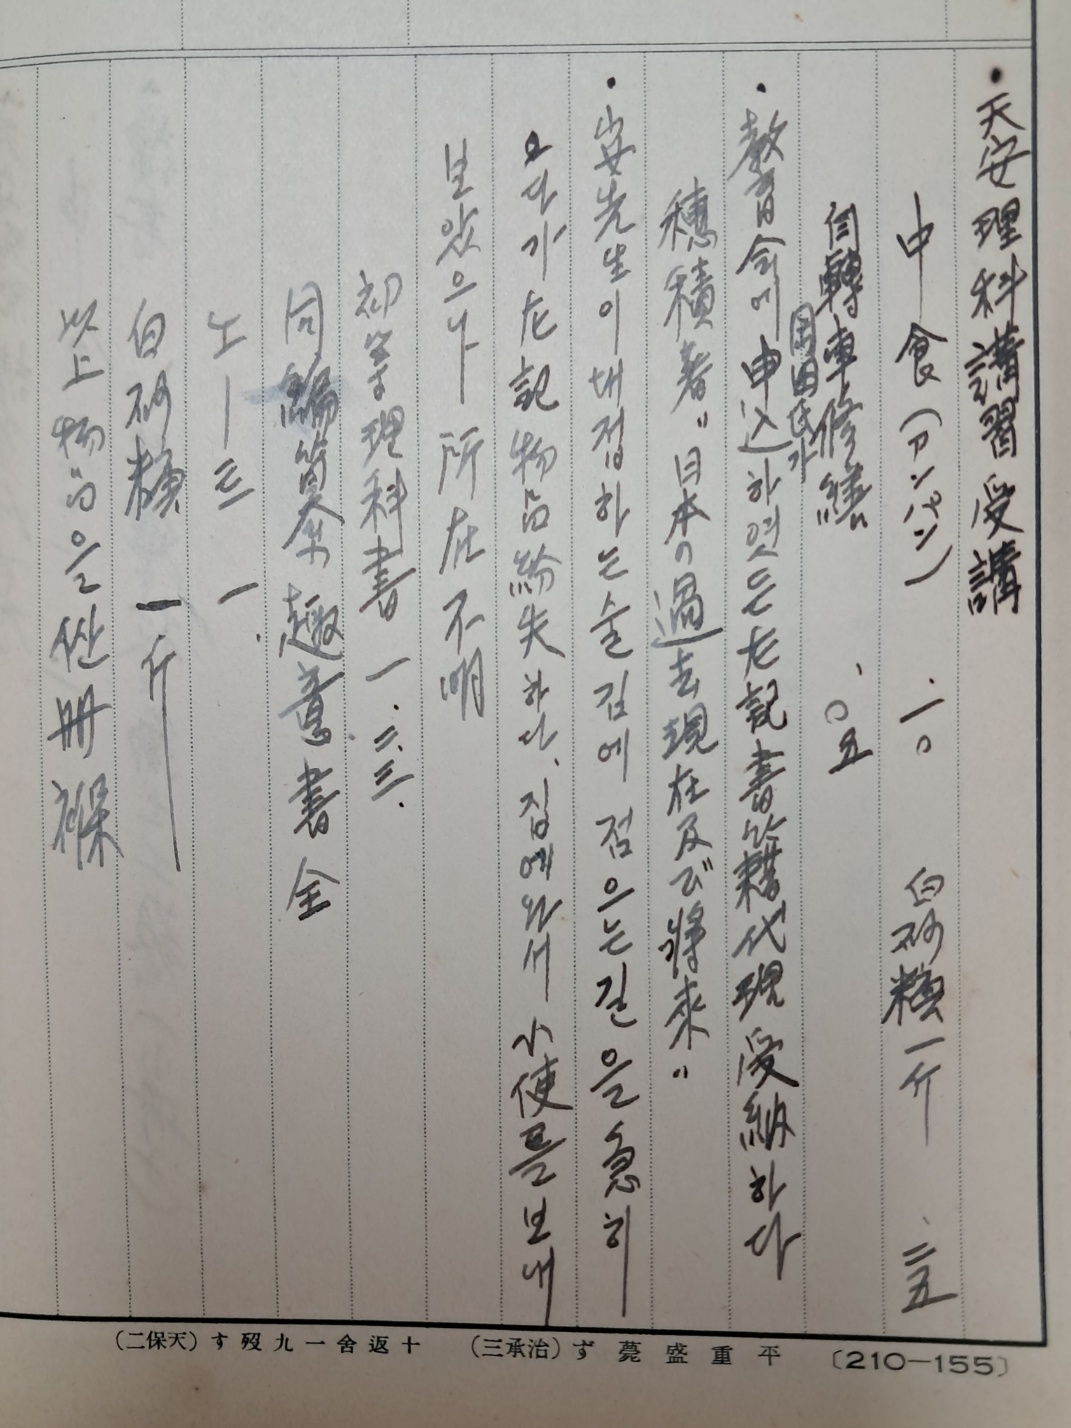 ・天安理科講習受講
中食(アンパン) .一〇 白砂糖一斤 .三五
自轉車修繕 .〇五
岡田氏가
・敎育會에申込하엿든左記書籍代現受納하다
穗積著"日本の過去現在及び將來"
・安先生이대접하는술김에 점으는길을急히
오다가左記物品紛失하다. 집에와서 小使를보내
보았으나 所在不明
初等理科書 一.二.三.
同編纂 趣意書 全
ノート 三
白砂糖 一斤
以上物品을 册褓
(天保二)す歿九一舍返十 (治承三)ず薨盛重平 〔210―155〕